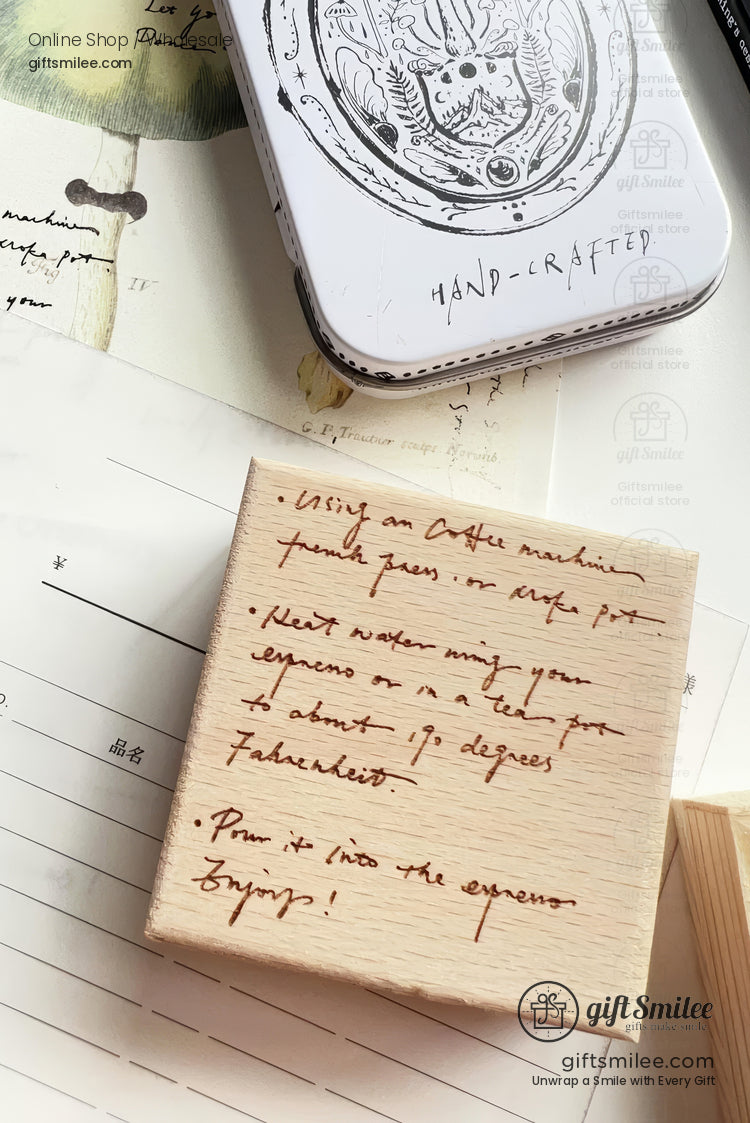 Online Shop / Wholesale
giftsmilee.com
Let yo
machine
your
IV
HAND-CRAFTED
G. P. Trautner sculps. Norimb.
• Using an Coffee machine
french press . or mofa pot.
• Heat water using your
espresso or in a tea pot
to about 190 degrees
Fahrenheit.
• Pour it into the espresso
Enjoys!
¥
品名
様
gift Smilee
Giftsmilee
official store
gift Smilee
Giftsmilee
official store
Giftsmilee
official store
gift Smilee
Giftsmilee
official store
giftSmilee
gifts make smile
giftsmilee.com
Unwrap a Smile with Every Gift